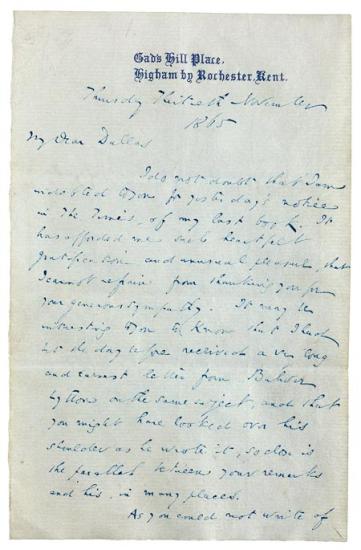 Gad's Hill Place,
Higham by Rochester, Kent.
Thursday Thirtieth November
1865
My Dear Dallas
I do not doubt that I am
indebted to you for yesterday's notice
in The Times, of my last book. It
has afforded me such heartfelt
gratification and unusual pleasure, that
I cannot refrain from thanking you for
your generous sympathy. It may be
interesting to you to know that I had
but the day before received a very long
and earnest letter from Bulwer
Lytton on the same subject, and that
you might have looked over his
shoulder as he wrote it, so close is
the parallel between your remarks
and his, in many places.
As you could not write of